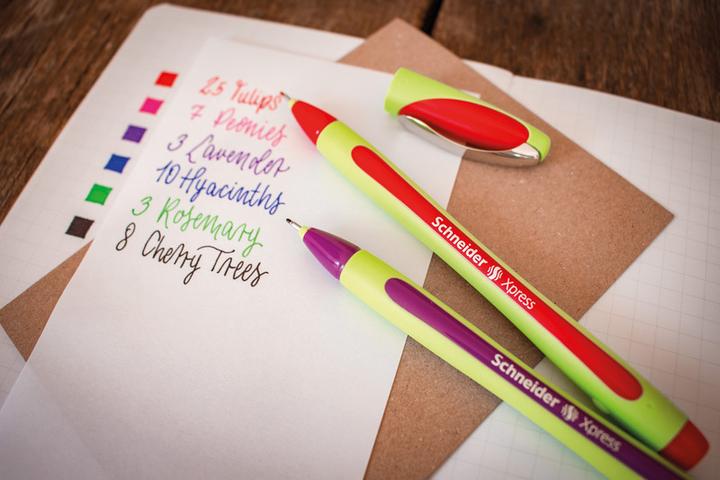 25 Tulips
7 Peonies
3 Lavender
10 Hyacinths
3 Rosemary
8 Cherry Trees
Schneider Xpress
Schneider Xpress